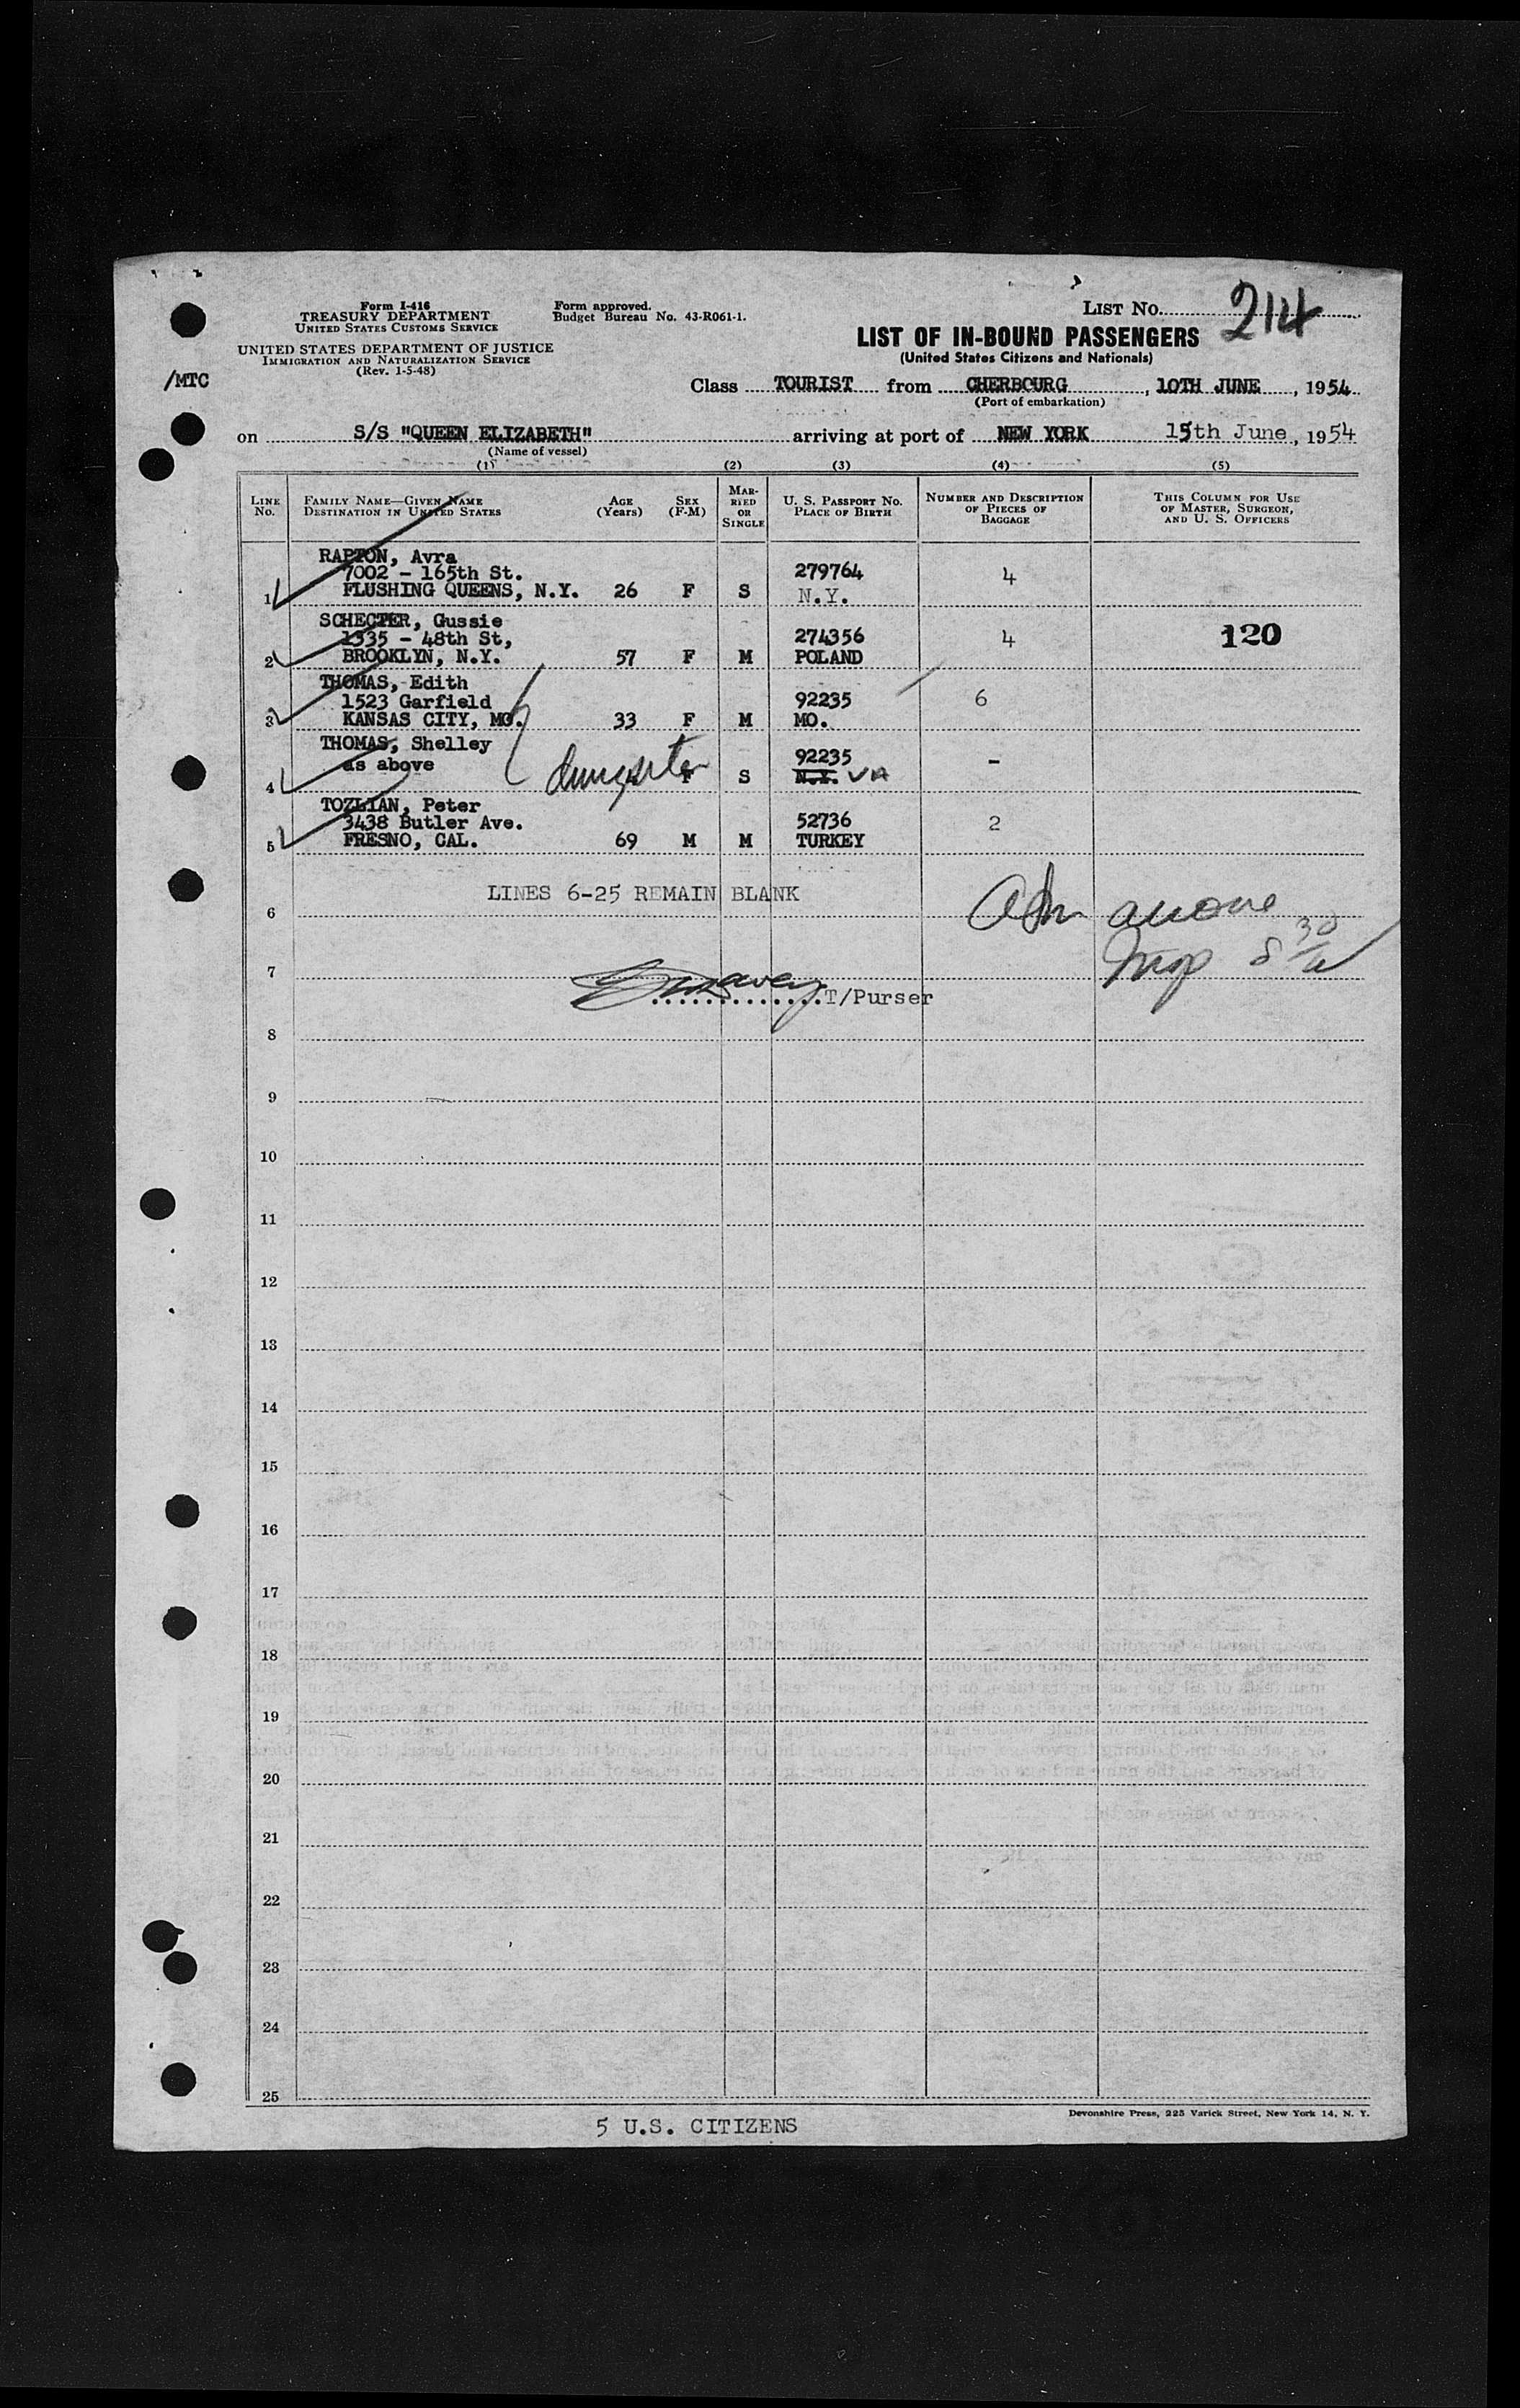 Form I-416
TREASURY DEPARTMENT
UNITED STATES CUSTOMS SERVICE
UNITED STATES DEPARTMENT OF JUSTICE
IMMIGRATION AND NATURALIZATION SERVICE
(Rev. 1-5-48)
Form approved.
Budget Bureau No. 43-R061-1.
/MTC
LIST NO. 214
LIST OF IN-BOUND PASSENGERS
(United States Citizens and Nationals)
Class TOURIST from CHERBOURG, 10TH JUNE, 1954
(Port of embarkation)
on S/S "QUEEN ELIZABETH" arriving at port of NEW YORK 15th June, 1954
(Name of vessel)
(1) (2) (3) (4) (5)
LINE NO.
FAMILY NAME—GIVEN NAME
DESTINATION IN UNITED STATES
AGE (Years)
SEX (F-M)
MARRIED OR SINGLE
U. S. PASSPORT NO.
PLACE OF BIRTH
NUMBER AND DESCRIPTION OF PIECES OF BAGGAGE
THIS COLUMN FOR USE OF MASTER, SURGEON, AND U. S. OFFICERS
RAPTON, Avra
7002 - 165th St. 279764 4
1 FLUSHING QUEENS, N.Y. 26 F S N.Y.
SCHECTER, Gussie
1335 - 48th St, 274356 4 120
2 BROOKLYN, N.Y. 57 F M POLAND
THOMAS, Edith
1523 Garfield 92235 6
3 KANSAS CITY, MO. 33 F M MO.
THOMAS, Shelley
as above 92235 -
4 daughter F S N.Y. VA
TOZLIAN, Peter
3438 Butler Ave. 52736 2
5 FRESNO, CAL. 69 M M TURKEY
LINES 6-25 REMAIN BLANK
6
7
T/Purser
8
9
10
11
12
13
14
15
16
17
18
19
20
21
22
23
24
25
Devonshire Press, 225 Varick Street, New York 14, N. Y.
5 U.S. CITIZENS